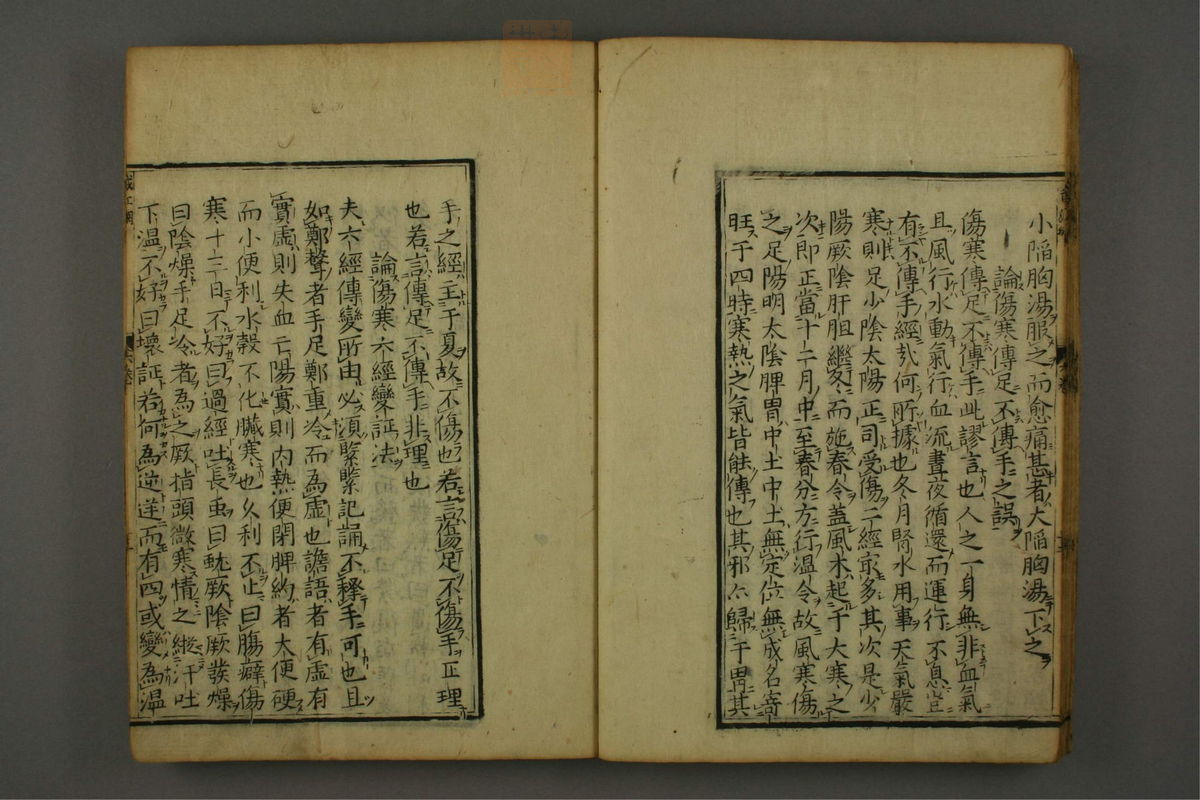 小陥胸湯服之而愈痛甚者大陥胸湯下之
論傷寒傳足不傳手之誤
傷寒傳足不傳手此謬言也人之一身無非血氣
且風行水動氣行血流晝夜循還而運行不息豈
有不傳手經㢤何所據也冬月腎水用事天氣嚴
寒則足少陰太陽正司受傷二經㝡多其次是少
陽厥陰肝胆繼冬而施春令蓋風木起于大寒之
次即正當十二月中至春分方行温令故風寒傷
之足陽明太陰脾胃中土中土無定位無成名寄
旺于四時寒熱之氣皆能傳也其邪亽歸于胃其
手之經主于夏故不傷也若言傷足不傷手正理
也若言傳足不傳手非理也
論傷寒六經變証法
夫六經傳變所由必須緊緊記誦不釋手可也且
如鄭聲者手足鄭重冷而為虚也譫語者有虚有
實虚則失血亡陽實則内熱便閉脾約者大便硬
而小便利水穀不化臓寒也久利不止曰腸癖傷
寒十三日不好曰過經吐長䖝曰蚘厥陰厥𤼵燥
曰陰燥手足冷者為之厥指頭微寒情之縦汗吐
下温不好曰壊証若何為逆逆而有四或變為温